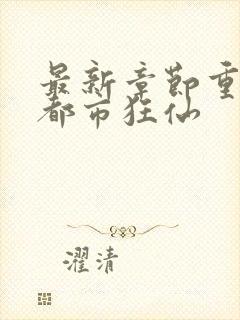 最新章節重
都市狂仙
濯清